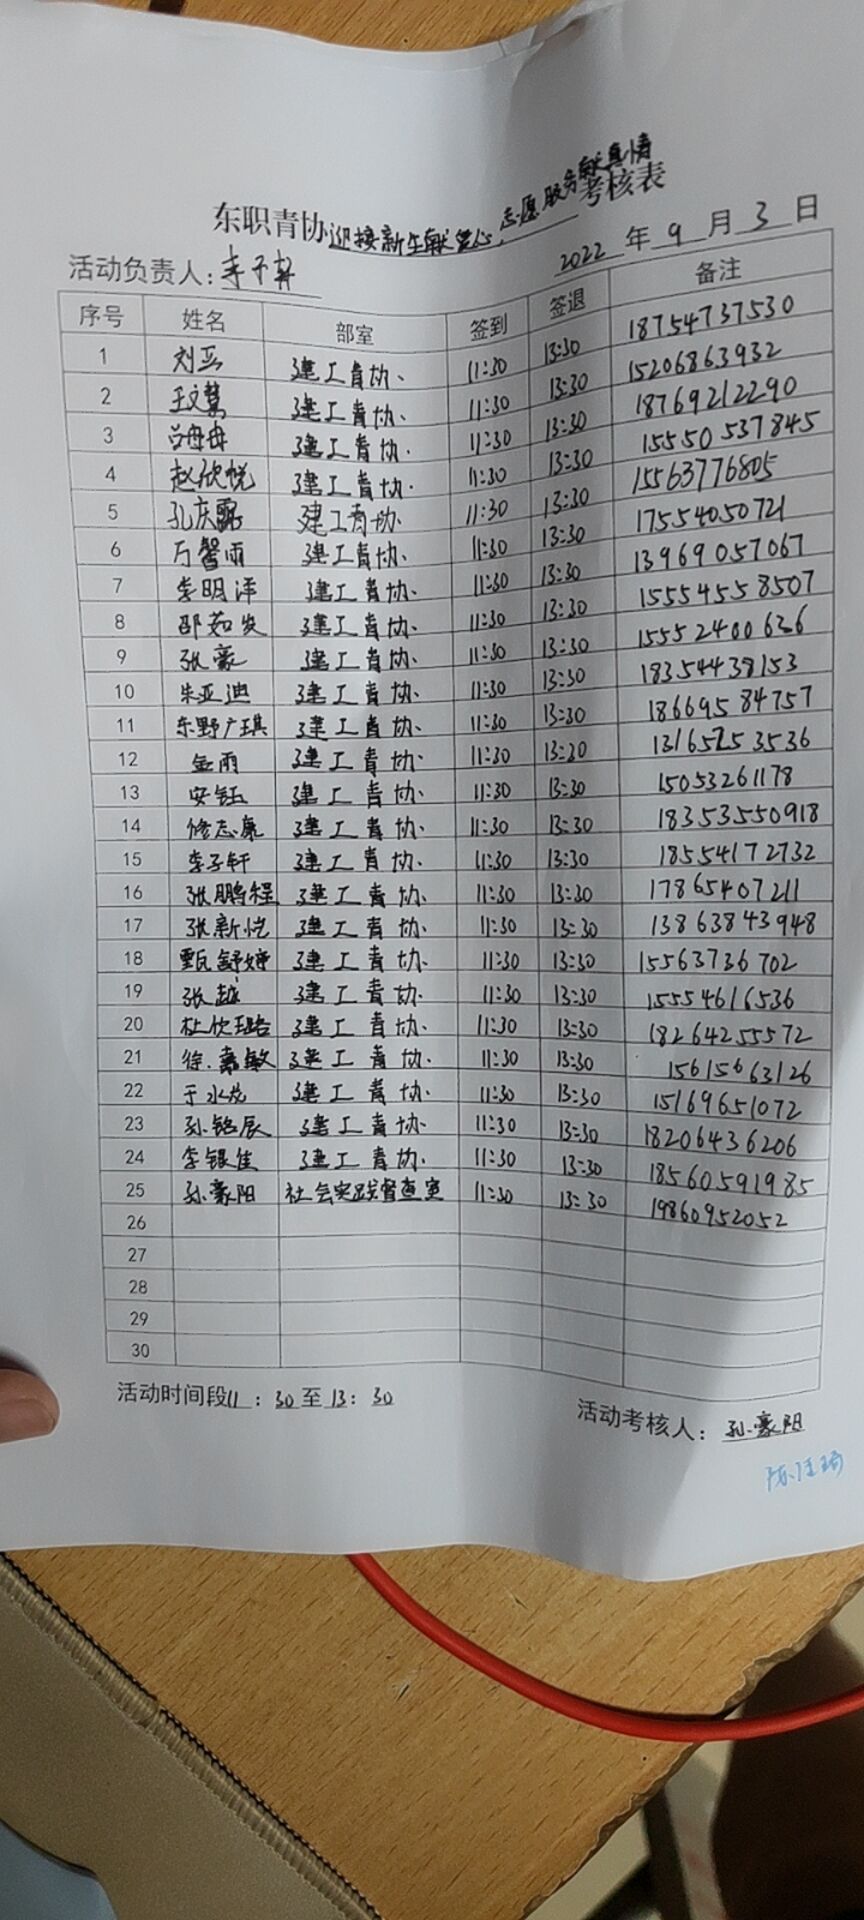 东职青协迎接新生献爱心,志愿服务献真情考核表
活动负责人:李子轩 2022年9月3日
序号 姓名 部室 签到 签退 备注
1 刘云 建工青协. 11:30 13:30 18754737530
2 王文慧 建工青协. 11:30 13:30 15206863932
3 吕冉冉 建工青协. 11:30 13:30 18769212290
4 赵欣悦 建工青协. 11:30 13:30 15550537845
5 孔庆露 建工青协. 11:30 13:30 15563776805
6 万馨雨 建工青协. 11:30 13:30 17554050721
7 李明泽 建工青协. 11:30 13:30 13969057067
8 邵茹岚 建工青协. 11:30 13:30 15554558507
9 张豪 建工青协. 11:30 13:30 15552400636
10 朱亚迪 建工青协. 11:30 13:30 18354438153
11 东野广琪 建工青协. 11:30 13:30 18669584757
12 金雨 建工青协. 11:30 13:30 13165253536
13 安钰 建工青协. 11:30 13:30 15053261178
14 修志康 建工青协. 11:30 13:30 18353550918
15 李子轩 建工青协. 11:30 13:30 18554172732
16 张鹏程 建工青协. 11:30 13:30 17865407211
17 张新恺 建工青协. 11:30 13:30 13863843948
18 甄舒婷 建工青协. 11:30 13:30 15563736702
19 张越 建工青协. 11:30 13:30 15554616536
20 杜欣璐 建工青协. 11:30 13:30 18264255572
21 徐嘉敏 建工青协. 11:30 13:30 15615663126
22 于水龙 建工青协. 11:30 13:30 15169651072
23 孙铭辰 建工青协. 11:30 13:30 18206436206
24 李银佳 建工青协. 11:30 13:30 18560591985
25 孙豪阳 社会实践督查室 11:30 13:30 19860952052
26
27
28
29
30
活动时间段11:30至13:30 活动考核人:孙豪阳
陈佳琦